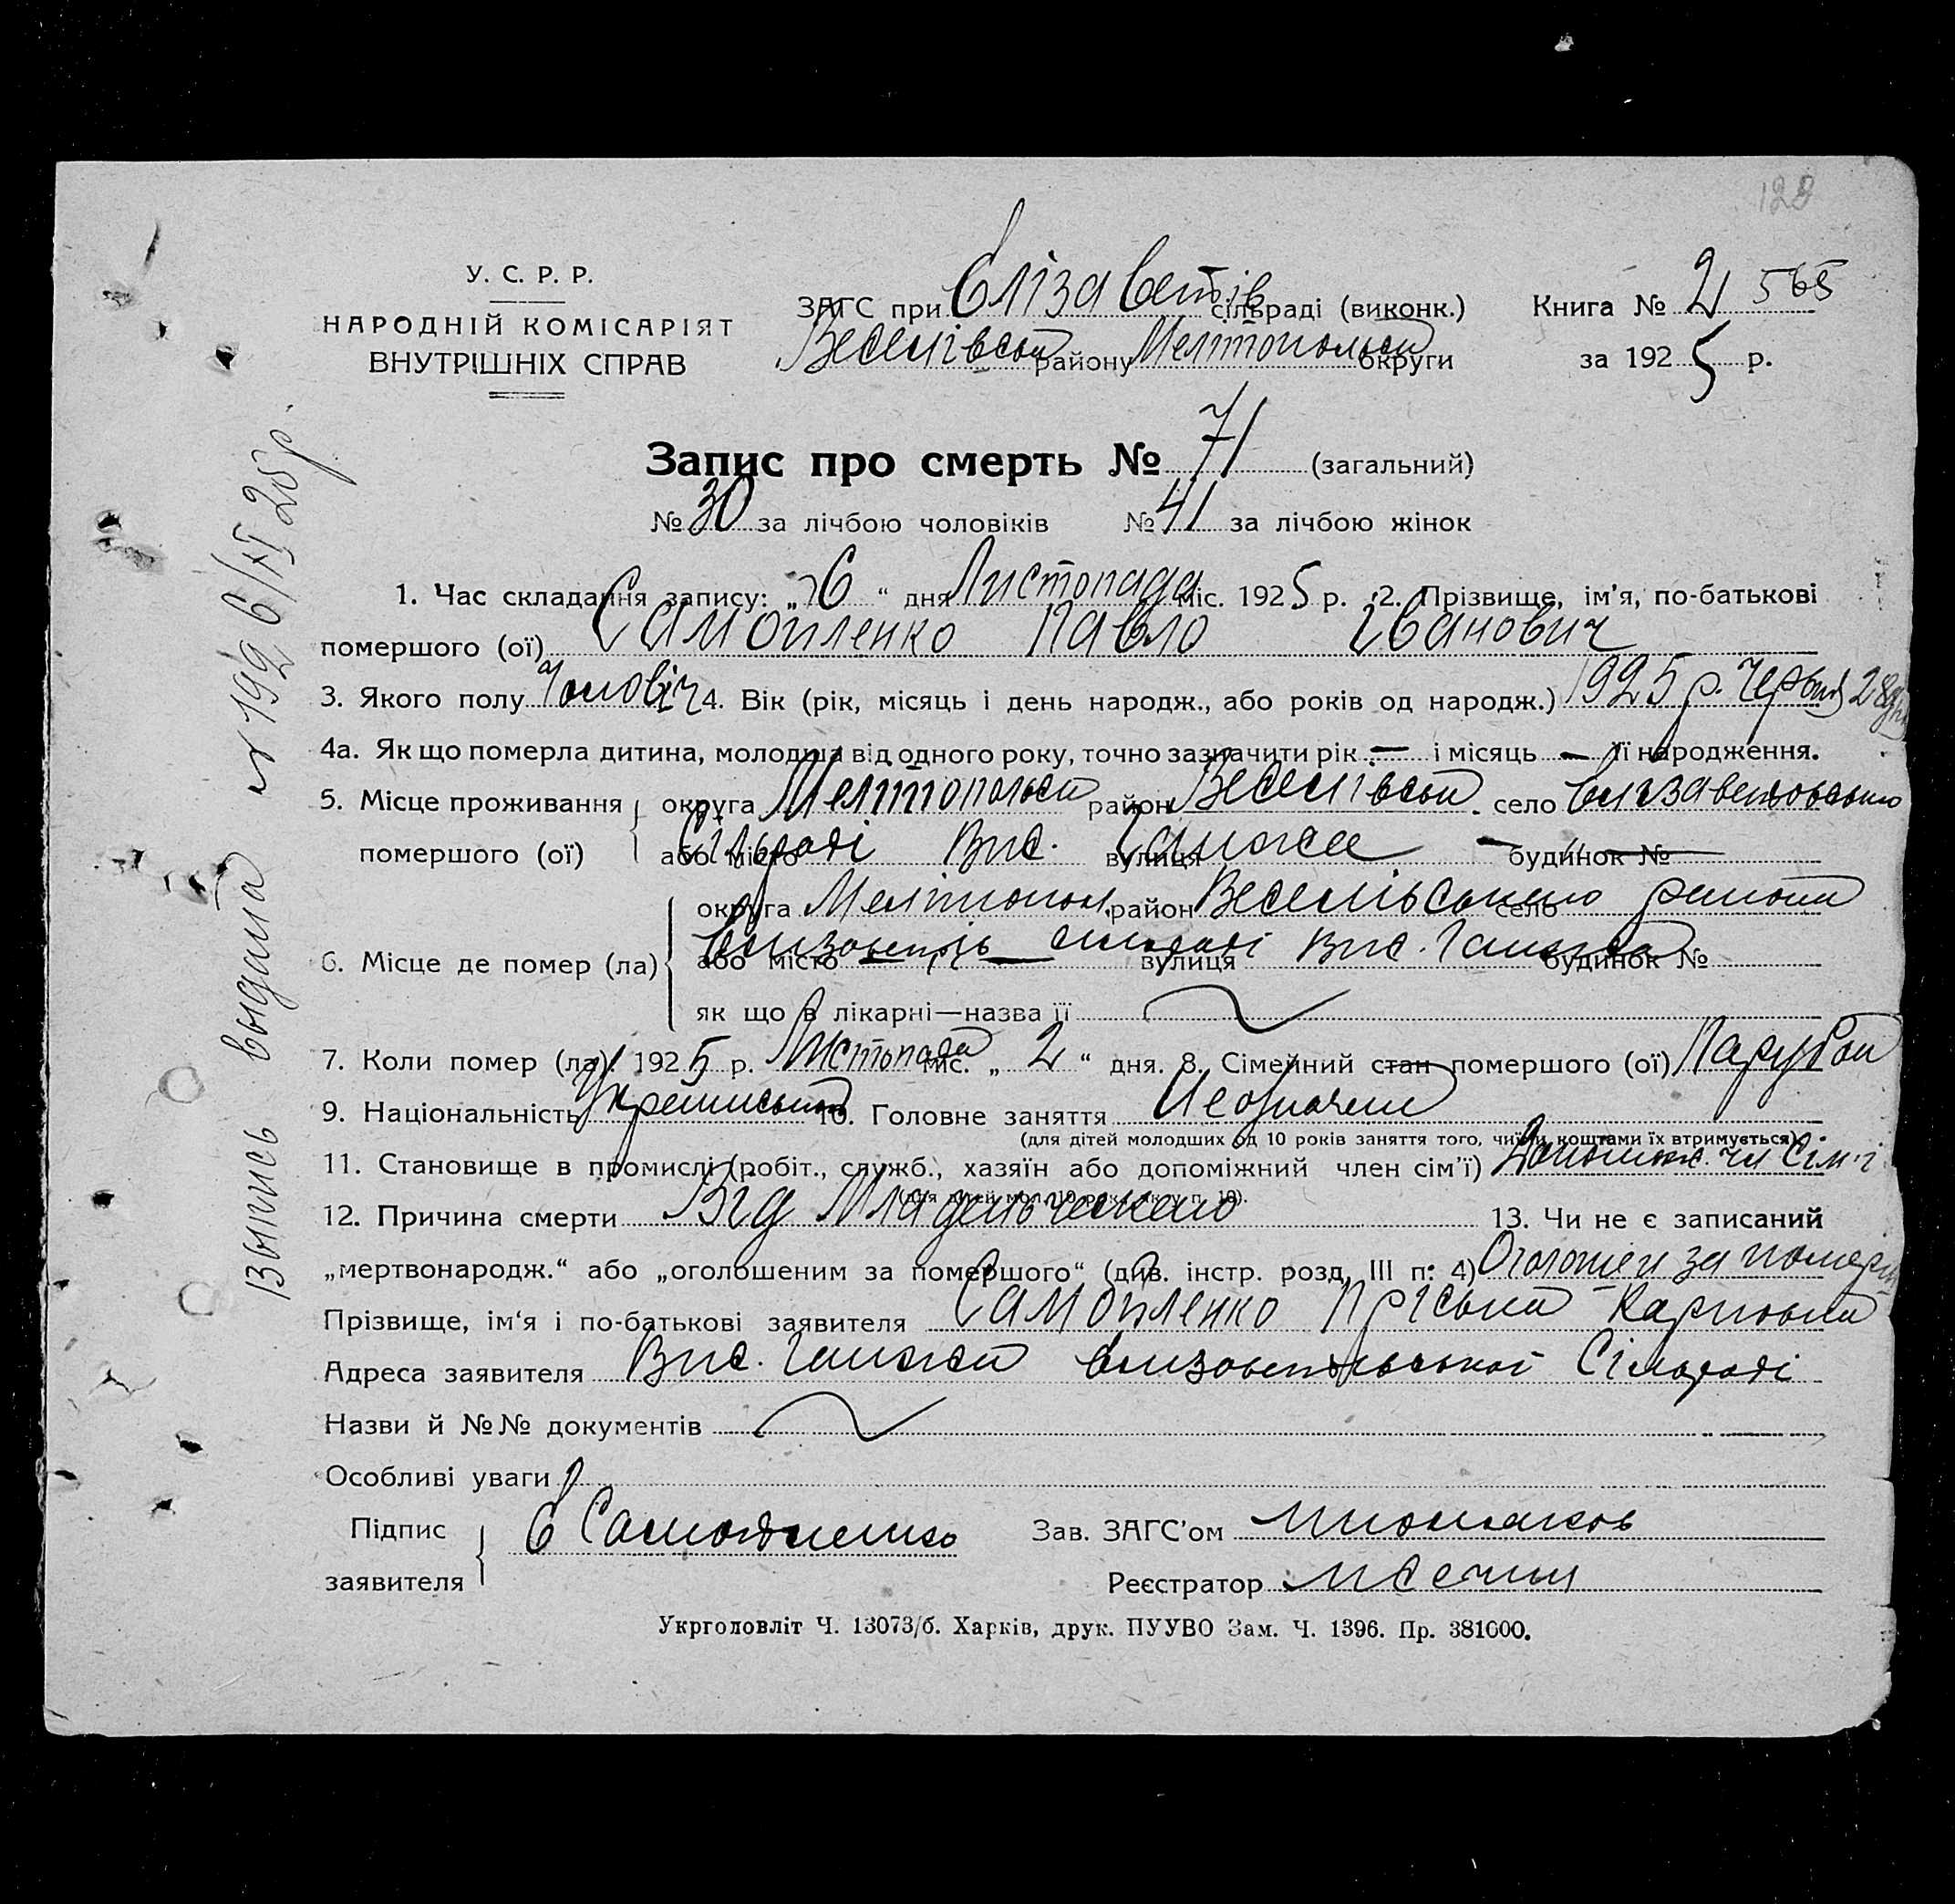 128
У. С. Р. Р.
НАРОДНІЙ КОМІСАРІЯТ
ВНУТРІШНІХ СПРАВ
ЗАГС при Єлізаветів сільраді (виконк.)
Веселівськ району Мелітопольськ округи
Книга № 2 565
за 1925 р.
Запис про смерть № 71 (загальний)
№ 30 за лічбою чоловіків № 41 за лічбою жінок
1. Час складання запису: „6“ дня Листопада міс. 1925 р. 2. Прізвище, ім'я, по-батькові
помершого (ої) Самойленко Павло Іванович
3. Якого полу Чоловіч 4. Вік (рік, місяць і день народж., або років од народж.) 1925 р. Червня 28 дня
4а. Як що померла дитина, молодша від одного року, точно зазначити рік — і місяць — її народження.
5. Місце проживання округа Мелітопольськ район Веселівськ село Єлизаветовською
помершого (ої) або місто Сільраді Вис. вулиця — будинок № —
6. Місце де помер (ла) округа Мелітопол. район Веселівського село району
або місто сільраді Вис. вулиця будинок №
як що в лікарні—назва її
7. Коли помер (ла) 1925 р. Листопада міс. „2“ дня. 8. Сімейний стан помершого (ої) Парубок
9. Національність Українськ 10. Головне заняття
(для дітей молодших од 10 років заняття того, чиїми коштами їх втримується)
11. Становище в промислі (робіт., служб., хазяїн або допоміжний член сім'ї) Допоміжн. чл Сім'ї
(для дітей мол. 10 рок. як у п. 10).
12. Причина смерти Від Младенческого 13. Чи не є записаний
„мертвонародж.“ або „оголошеним за помершого“ (див. інстр. розд. III п. 4) Оголошен за померш
Прізвище, ім'я і по-батькові заявителя Самойленко Пріська Карповна
Адреса заявителя Вис. Сільраді
Назви й №№ документів
Особливі уваги
Підпис заявителя Є Самойленко
Зав. ЗАГС'ом
Реєстратор
Укрголовліт Ч. 13073/б. Харків, друк. ПУУВО Зам. Ч. 1396. Пр. 381000.
Выпись выдана № 192 6/XI 25 р.